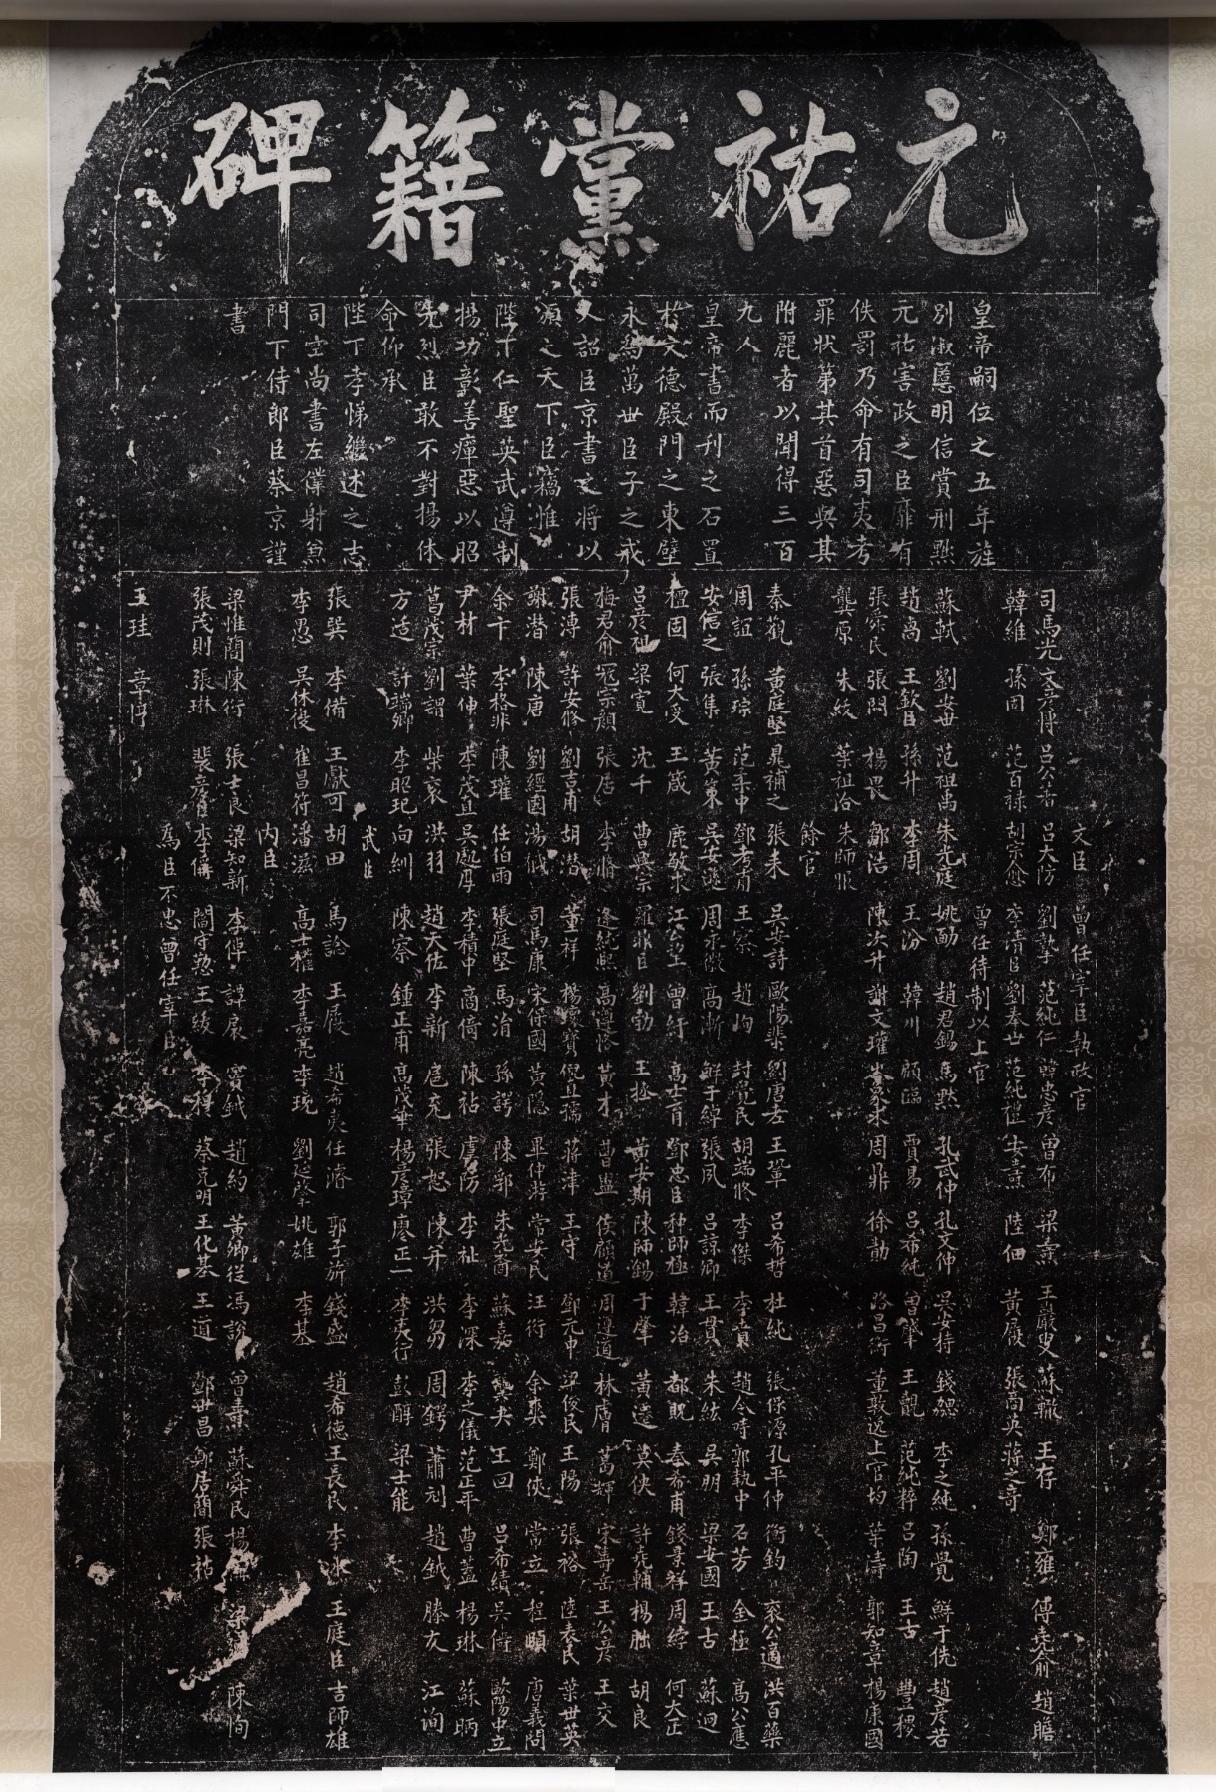 元祐黨籍碑
皇帝嗣位之五年旌
別淑慝明信賞刑黜
元祐害政之臣靡有
佚罰乃命有司夷考
罪狀第其首惡與其
附麗者以聞得三百
九人
皇帝書而刊之石置
於文德殿門之東壁
永為萬世臣子之戒
又詔臣京書之將以
頒之天下臣竊惟
陛下仁聖英武遵制
揚功彰善癉惡以昭
先烈臣敢不對揚休
命仰承
陛下孝悌繼述之志
司空尚書左僕射兼
門下侍郎臣蔡京謹
書
文臣 曾任宰臣執政官
司馬光 文彥博 呂公著 呂大防 劉摯 范純仁 韓忠彥 曾布 梁燾 王巖叟 蘇轍 王存 鄭雍 傅堯俞 趙瞻
韓維 孫固 范百祿 胡宗愈 李清臣 劉奉世 范純禮 安燾 陸佃 黃履 張商英 蔣之奇
曾任待制以上官
蘇軾 劉安世 范祖禹 朱光庭 姚勔 趙君錫 馬默 孔武仲 孔文仲 吳安持 錢勰 李之純 孫覺 鮮于侁 趙彥若
趙卨 王欽臣 孫升 李周 王汾 韓川 顧臨 賈易 呂希純 曾肇 王覿 范純粹 呂陶 王古 豐稷
張舜民 張問 楊畏 鄒浩 陳次升 謝文瓘 岑象求 周鼎 徐勣 路昌衡 董敦逸 上官均 葉濤 郭知章 楊康國
龔原 朱紱 葉祖洽 朱師服
餘官
秦觀 黃庭堅 晁補之 張耒 吳安詩 歐陽棐 劉唐老 王鞏 呂希哲 杜純 張保源 孔平仲 衡鈞 袞公適 洪百藥
周誼 孫琮 范柔中 鄧考甫 王察 趙峋 封覺民 胡端修 李傑 李賁 趙令時 郭執中 石芳 金極 高公應
安信之 張集 黃策 吳安遜 周永徽 高漸 鮮于綽 張夙 呂諒卿 王貫 朱紘 吳朋 梁安國 王古 蘇迥
檀固 何大受 王箴 鹿敏求 江公望 曾紆 高士育 鄧忠臣 种師極 韓治 都貺 秦希甫 錢景祥 周綍 何大正
呂彥祖 梁寬 沈千 曹興宗 羅鼎臣 劉勃 王拯 黃安期 陳師錫 于肇 黃遷 莫俠 許堯輔 楊朏 胡良
梅君俞 寇宗顏 張居 李脩 逢純熙 高遵恪 黃才 曹盥 侯顧道 周遵道 林膚 葛輝 宋壽岳 王公彥 王交
張溥 許安修 劉吉甫 胡潛 董祥 楊瓌寶 倪直孺 蔣津 王守 鄧元中 梁俊民 王陽 張裕 陸表民 葉世英
謝潛 陳唐 劉經國 湯戫 司馬康 宋保國 黃隱 畢仲游 常安民 汪衍 余爽 鄭俠 常立 程頤 唐義問
余卞 李格非 陳瓘 任伯雨 張庭堅 馬涓 孫諤 陳郛 朱光裔 蘇嘉 龔夬 王回 呂希績 吳儔 歐陽中立
尹材 葉伸 李茂直 吳處厚 李積中 商倚 陳祐 虞防 李祉 李深 李之儀 范正平 曹蓋 楊琳 蘇昞
葛茂宗 劉謂 柴袞 洪羽 趙天佐 李新 扈充 張恕 陳并 洪芻 周鍔 蕭刓 趙鉞 滕友 江洵
方适 許端卿 李昭玘 向紃 陳察 鍾正甫 高茂華 楊彥璋 廖正一 李夷行 彭醇 梁士能
武臣
張巽 李備 王獻可 胡田 馬諗 王履 趙希夷 任濬 郭子旂 錢盛 趙希德 王長民 李永 王庭臣 吉師雄
李愚 吳休復 崔昌符 潘滋 高士權 李嘉亮 李珫 劉延肇 姚雄 李基
內臣
梁惟簡 陳衍 張士良 梁知新 李倬 譚扆 竇鉞 趙約 黃卿從 馮說 曾燾 蘇舜民 楊 梁 陳恂
張茂則 張琳 裴彥臣 李偁 閻守懃 王紱 李穆 蔡克明 王化基 王道 鄧世昌 鄭居簡 張祐
為臣不忠曾任宰臣
王珪 章惇